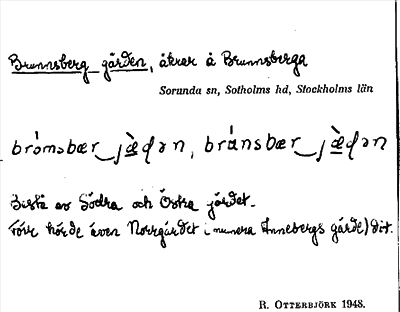 Brunnsberg gärden, åkrar å Brunnsberga
Sorunda sn, Sotholms hd, Stockholms län
Består av Södra och Östra gärdet.
Förr hörde även Norrgärdet i numera Annebergs gärde) dit.
R. OTTERBJÖRK 1948.